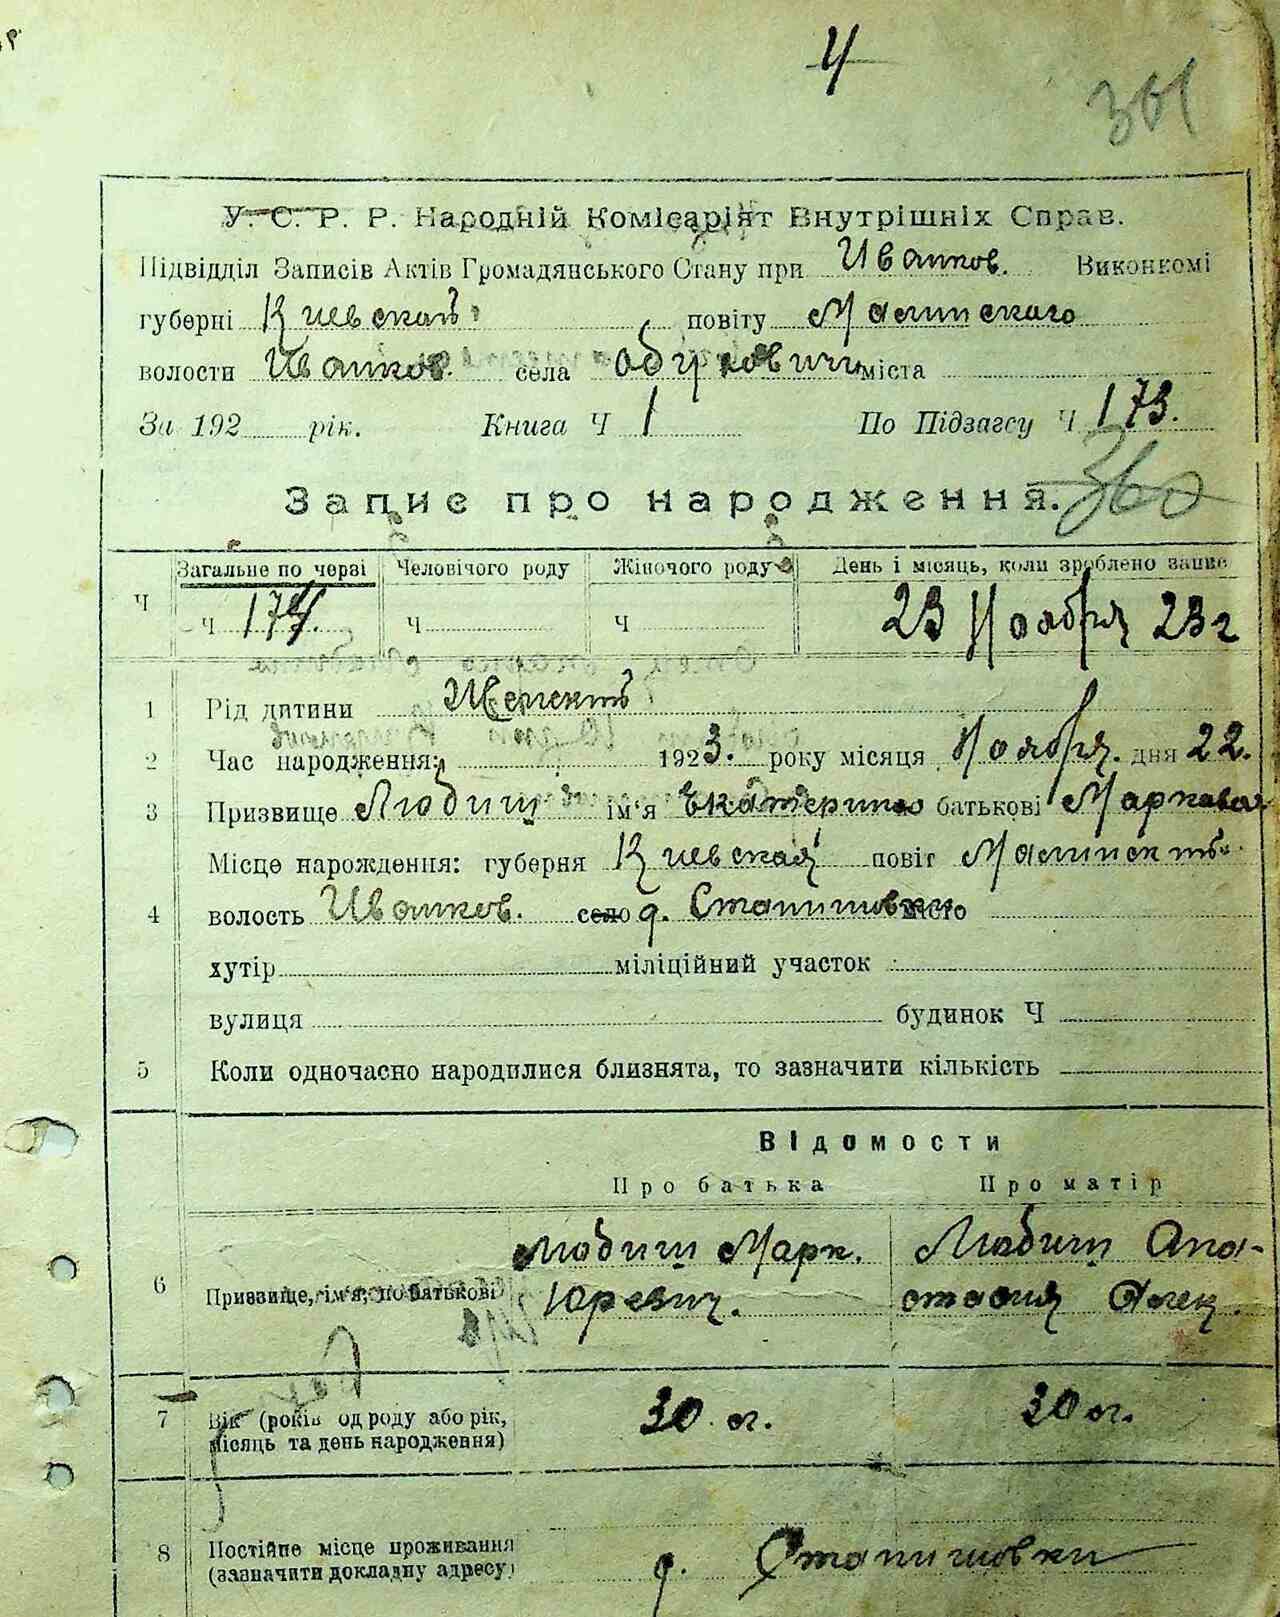 4
361
У. С. Р. Р. Народній Комісаріят Внутрішніх Справ.
Підвідділ Записів Актів Громадянського Стану при Иванков. Виконкомі
губерні Киевской повіту Малинскаго
волости Иванков. села Обуховичи міста
За 192 рік. Книга Ч 1 По Підзагсу Ч 173.
Запис про народження. 360
Ч Загальне по черзі Человічого роду Жіночого роду День і місяць, коли зроблено запис
Ч 174. Ч Ч 23 Ноября 23 г
1 Рід дитини Женский
2 Час народження: 1923. року місяця Ноября. дня 22.
3 Призвище ім'я Екатерина батькові Марковая
Місце нарождення: губерня Киевская повіт Малинский
4 волость Иванков. село д. Станишовки місто
хутір міліційний участок
вулиця будинок Ч
5 Коли одночасно народилися близнята, то зазначити кількість
Відомости
Про батька Про матір
6 Призвище, ім'я, по батькові Марк. Ана-
Юревич. стасия Алек.
7 Вік (років од роду або рік, 30 л. 30 л.
місяць та день народження)
8 Постійне місце проживання д. Станишовки
(зазначити докладну адресу)